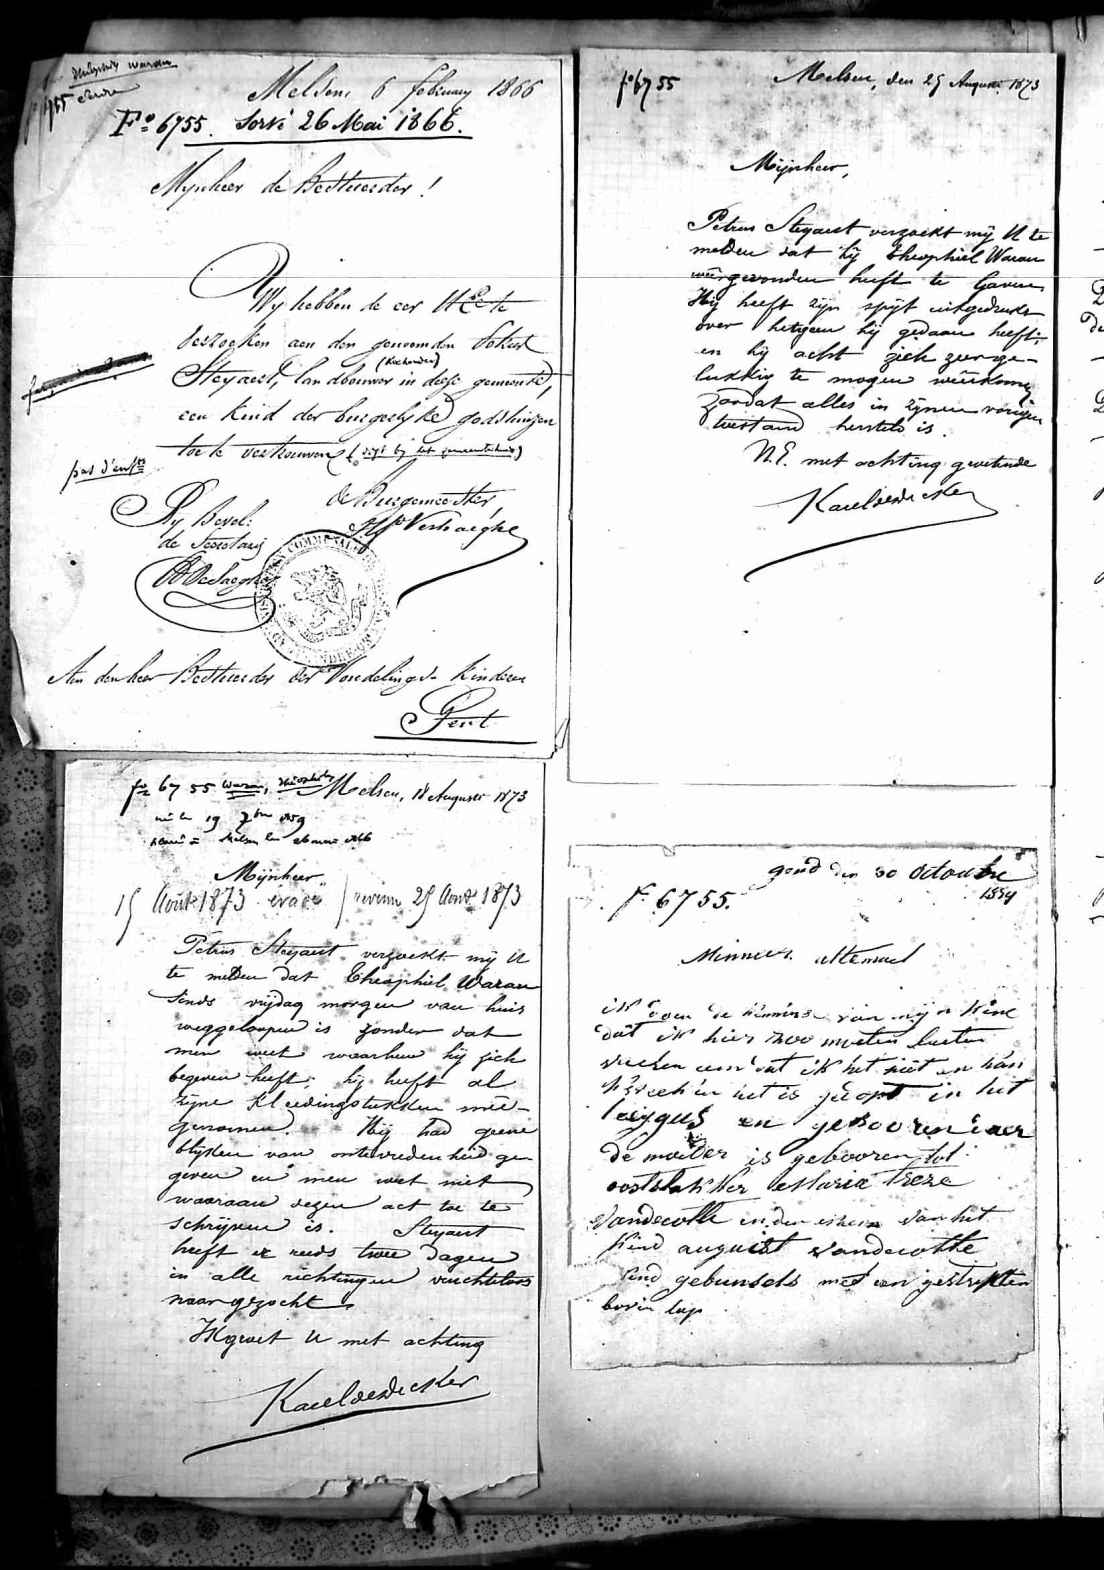 Theophiel Waran
6755
Melsen, 6 february 1866
Fo 6755. Sorti 26 Mai 1866.
Mynheer de Bestierder!
Wy hebben de eer UEd te
verzoeken aen den genoemden Petrus
Steyaert, (Koehouder) landbouwer in deese gemeente,
een kind der burgerlyke godshuizen
toe te vertrouwen
pas d'enfts
de Burgemeester
By Bevel:
Verhaeghe
de Secretaris
DeSaeghe
Aen den heer Bestierder der Vondelings Kinderen
Gent
fo 6755
Melsen, den 25 Augusti 1873
Mijnheer,
Petrus Steyaert verzoekt mij U te
melden dat hij Theophiel Waran
wêergevonden heeft te Gavere
Hij heeft zijn spijt uitgedrukt
over hetgeen hij gedaan heeft,
en hij acht zich zeer ge-
lukkig te mogen wêerkomen
zoodat alles in zijnen vorigen
toestand hersteld is.
U.E. met achting groetende
Karel Dedecker
fo 6755 Waran, Theophiel Melsen, 18 Augusti 1873
né le 19 7bre 1859
placé à Melsen le 26 mai 1866
Mijnheer
15 Août 1873 évadé revenu 25 Août 1873
Petrus Steyaert verzoekt mij U
te melden dat Theophiel Waran
sinds vrijdag morgen van huis
weggeloopen is zonder dat
men weet waarheen hij zich
begeven heeft; hij heeft al
zijne kleedingstukken mêe-
genomen. Hij had geene
blijken van ontevredenheid ge-
geven en men weet niet
waaraan dezen act toe te
schrijven is. Steyaert
heeft er reeds twee dagen
in alle richtingen vruchteloos
naar gezocht.
Ik groet U met achting
Karel Dedecker
gend den 30 octoubre
1859
F 6755.
Minneer
ik
van mijn kine
dat ik hier zoo moeten
dat ik het niet en kan
het is gedopt in het
en gebooren
de moeder is gebooren tot
oostakker Maria Treze
Vandecotte van het
kind august Vandecotte
kind gebunsels met een gestrikten